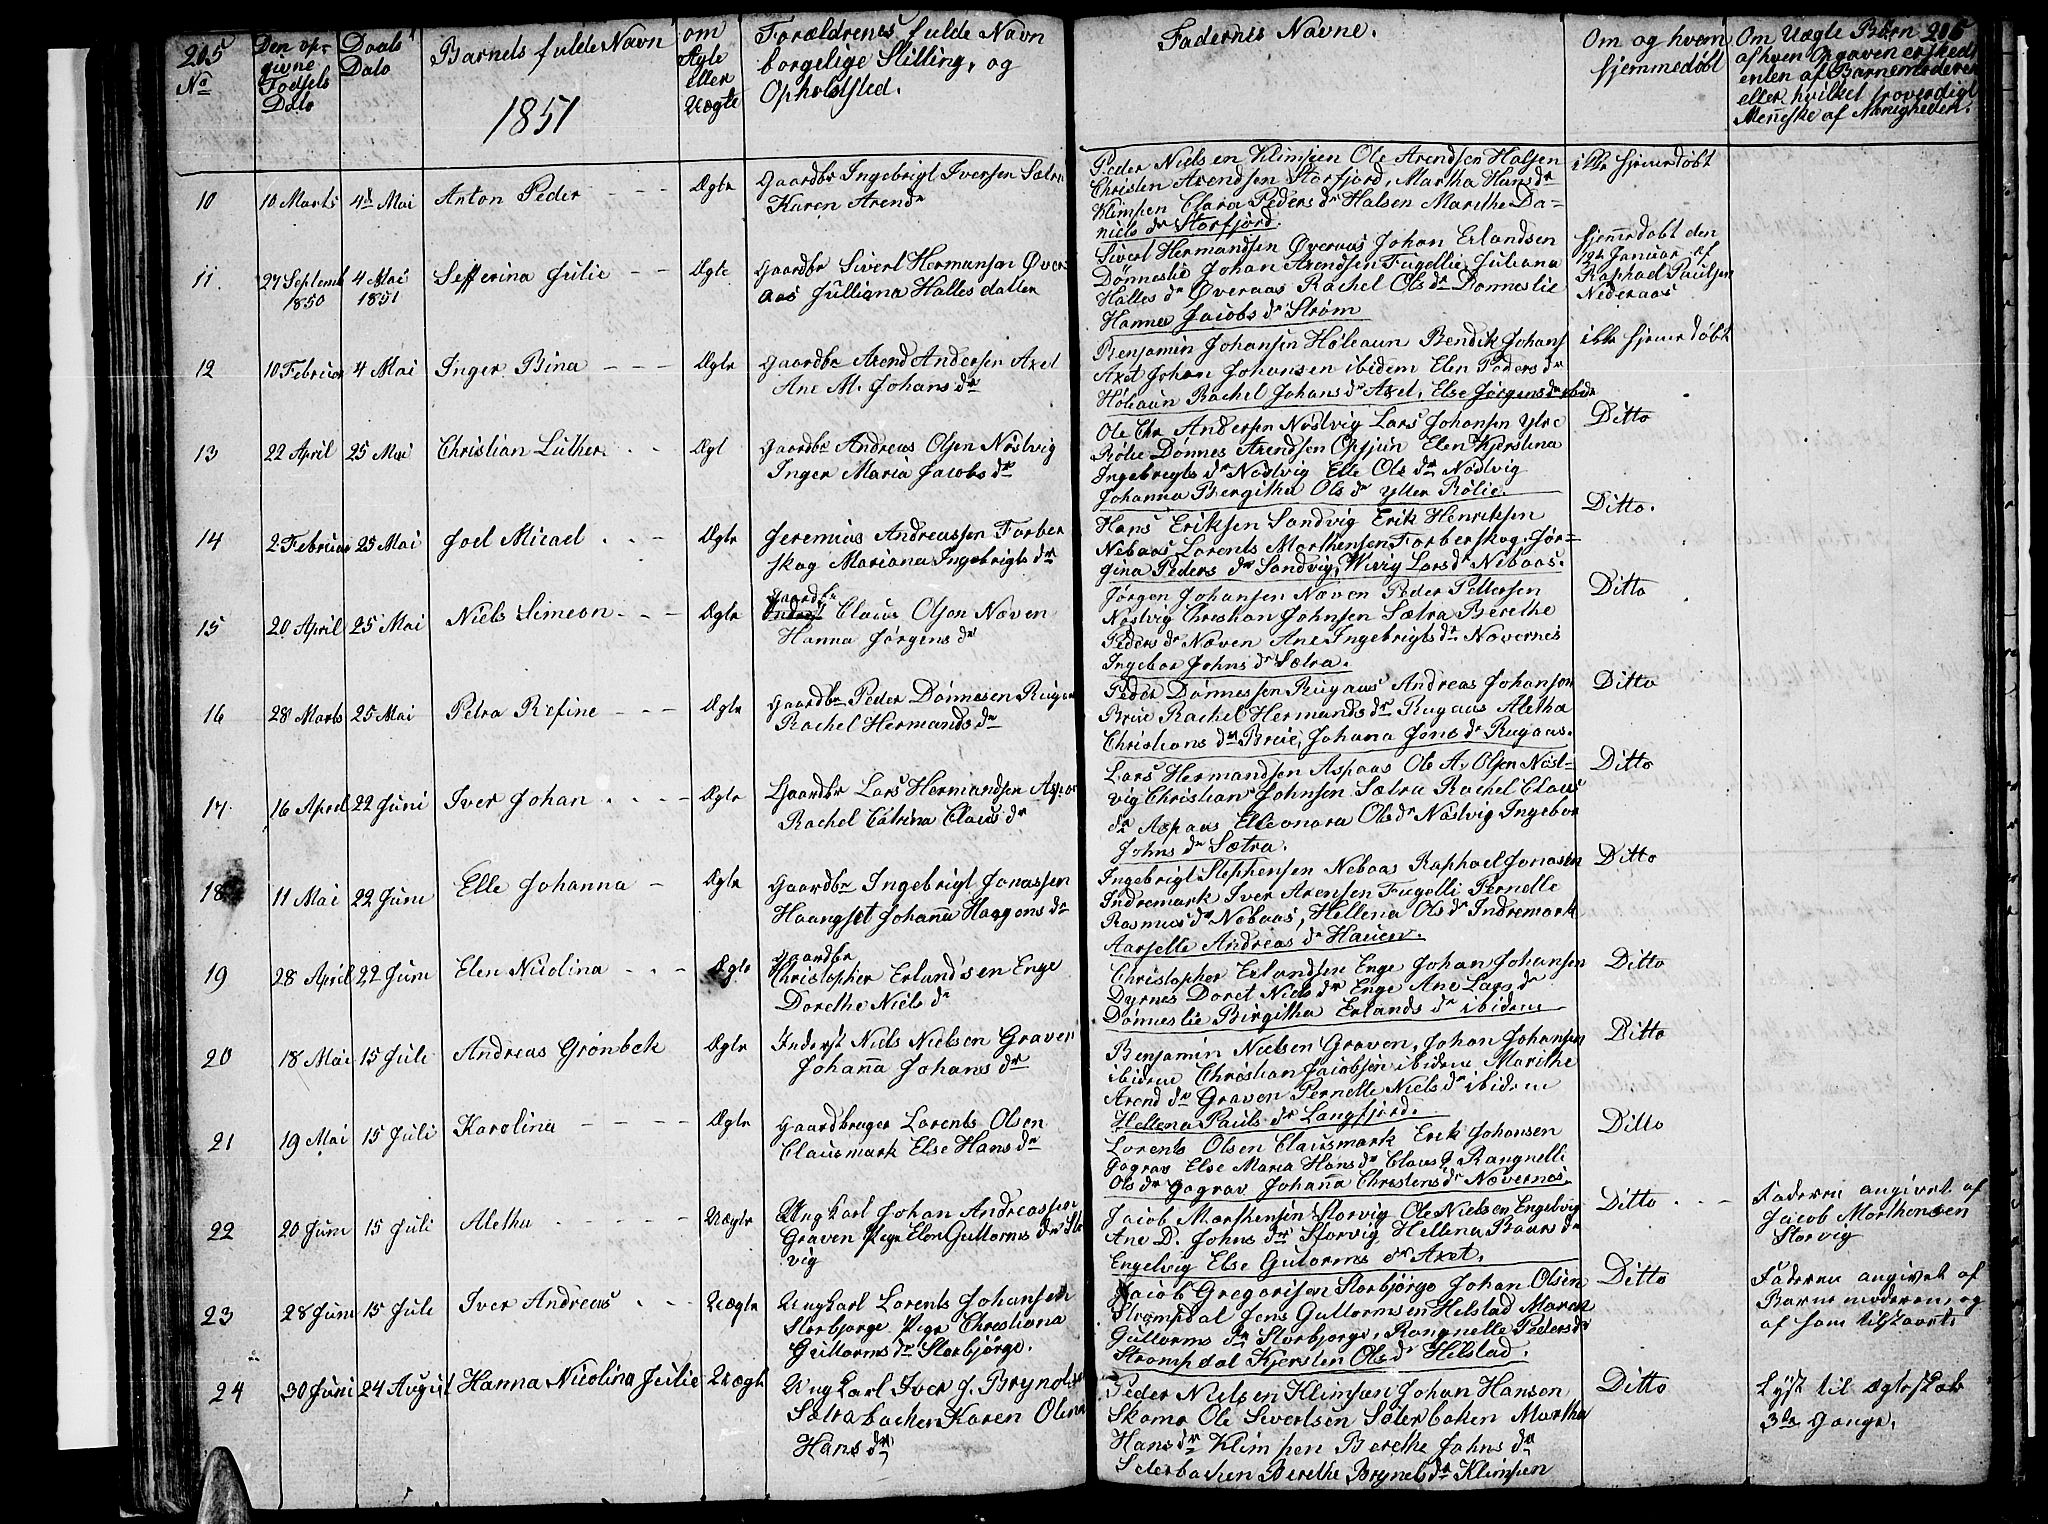 205
No
Den op-
givne
Fødsels
Dato
Daabs
Dato
Barnets fulde Navn
1851
om
Ægte
eller
Uægte
Forældrenes fulde Navn
borgelige Stilling, og
Opholdsted.
Fadernis Navne.
Om og hvem
hjemmedøbt
Om Uægte Børn 206
af hven Opgaven er skeed
enten af Barnemoderen
eller hvilket troverdigt
Menniske af Nærigheden.
10 10 Marts 4de Mai Anton Peder Ægte
Gaardbr Ingebrigt Iversen Sætra
Karen Arendr
Peder Nielsen Klimpen Ole Arendsen Halsen
Christen Arendsen Storfjord, Martha Hansdr
Klimpen Clara Pedersdr Halsen Marethe Da-
nielsdr Storfjord.
ikke hjemedøbt
11. 27 Septemb 1850 4 Mai 1851 Sefferina Julie Ægte
Gaardbr Sivert Hermansen Over
aas Julliana Hallesdatter
Sivert Hermandsen Øveraas Johan Erlandsen
Dønneslie Johan Arendsen Fugellie, Juliana
Hallesdr Øveraas Rachel Olsdr Dønneslie
Hanna Jacobsdr Strøm
hjemedøbt den
12te Januar af
Raphael Paulsen
Nederaas
12 10 Februar 4 Mai Inger Bina Ægte
Gaardbr Arend Andersen Axet
Ane M. Johansdr
Benjamin Johansen Høleaun Bendik Johans
Axet Johan Johansen ibidem Elen Pedersdr
Høleaun Rachel Johansdr Axet, Else Jørgensdr ibide
ikke hjemedøbt
13 22 April 25 Mai Christian Luther Ægt
Gaardbr Andreas Olsen Nøstvig
Inger Maria Jacobsdr
Ole Chr Andersen Nøstvig Lars Johansen Ytre
Rølie Dønnes Arendsen Opsjøn Elen Kjerstina
Ingebregtsdr Nøstvig Elle Olsdr Nøstvig
Johanna Bergitha Olsdr Ytter Rølie.
Ditto
14 2 Februar 25 Mai Joel Micael Ægte
Jeremias Andreassen Forber
skog Mariana Ingebrigtsdr
Hans Eriksen Sandvig Erik Henriksen
Nebaas Lorents Morthensen Forberskog Jør-
gina Pedersdr Sandvig, Larsdr Nebaas.
Ditto.
15 20 April 25 Mai Niels Simeon Ægte
Gaardbr
Claus Olsen Næven
Hanna Jørgensdr
Jørgen Johansen Næven Peder Pettersen
Nøstvig Christian Johnsen Sætra Berethe
Pedersdr Næven Ane Ingebrigtsdr Nævernes
Ingebor Johnsdr Sætra.
Ditto
16 28 Marts 25 Mai Petra Refine Ægte
Gaardbr Peder Dønnesen Rugaas
Rachel Hermandsdr
Peder Dønnessen Rugaas Andreas Johansen
Brue Rachel Hermandsdr Rugaas Aletha
Christiansdr Brue, Johana Jonsdr Rugaas.
Ditto
17. 16 April 22 Juni Iver Johan Ægte
Gaardbr Lars Hermandsen Aspaa
Rachel Catrina Clausdr
Lars Hermandsen Aspaas Ole A. Olsen Nøst-
vig Christian Johnsen Sætra Rachel Claus
dr Aspaas Elleonora Olsdr Nøstvig Ingebor
Johnsdr Sætra.
Ditto
18 11 Mai 22 Juni Elle Johanna Ægte
Gaardbr Ingebrigt Jonassen
Haangset Johanna Haagensdr
Ingebrigt Stephensen Nebaas Raphael Jonasen
Indremark Iver Arensen Fugelli Pernelle
Rasmusdr Nebaas, Hellena Olsdr Indremark
Aarselle Andreasdr Hauen.
Ditto
19 28 April 22 Juni Elen Nicolina Ægte
Gaardbr
Christopher Erlandsen Enge
Dorethe Nielsdr
Christopher Erlandsen Enge Johan Johansen
Dyrnes Doret Nielsdr Enge Ane Larsdr
Dønneslie Birgitha Erlandsdr ibidem
Ditto
20 18 Mai 15 Juli Andreas Grønbek Ægte
Inderst Niels Nielsen Graven
Johanna Johansdr
Benjamin Nielsen Graven, Johan Johansen
ibidem Christian Jacobsen ibidem Marithe
Arenddr Graven Pernelle Nielsdr ibidem
Hellena Paulsdr Langfjord.
Ditto
21 19 Mai 15 Juli Karolina Ægte
Gaardbruger Lorents Olsen
Clausmark Else Hansdr
Lorents Olsen Clausmark Erik Johansen
Gograv Else Maria Hansdr Claus Rangnelli
Olsdr Gograv Johanna Christensdr Nævernes.
Ditto
22 20 Juni 15 Juli Aletha Uægte
Ungkarl Johan Andreassen
Graven Pige Elen Guttormsdr Stor
vig
Jacob Morthensen Storvig Ole Nielsen Engelvig
Ane D. Johnsdr Storvig Hellena Baarsdr
Engelvig Else Gutormsdr Axet.
Ditto
Faderen angivet af
Jacob Morthensen
Storvig
23 28 Juni 15 Juli Iver Andreas Uægte
Ungkarl Lorents Johansen
Storbjørge Pige Christiana
Guttormsdr Storbjørge.
Jacob Gregorisen Storbjørge Johan Olsen
Strømpdal Jens Guttormsen Helstad Maret
Guttormsdr Storbjorge, Rangnelle Pedersdr
Strømpdal Kjersten Olsdr Helstad.
Ditto
Faderen angivet af
Barnemoderen, og
af ham tilstaaet.
24 30 Juni 24 August Hanna Nicolina Julie Uægte
Ungkarl Iver J. Brynolds
Sætrabachen Karen Olena
Hansdr
Peder Nielsen Klimpen Johan Hansen
Skomo Ole Sivertsen Seterbaken Martha
Hansdr Klimpen Berethe Johnsdr
Seterbachen Berethe Brynelsdr Klimpen
Ditto
Lyst til Ægteskab
3de Gange.